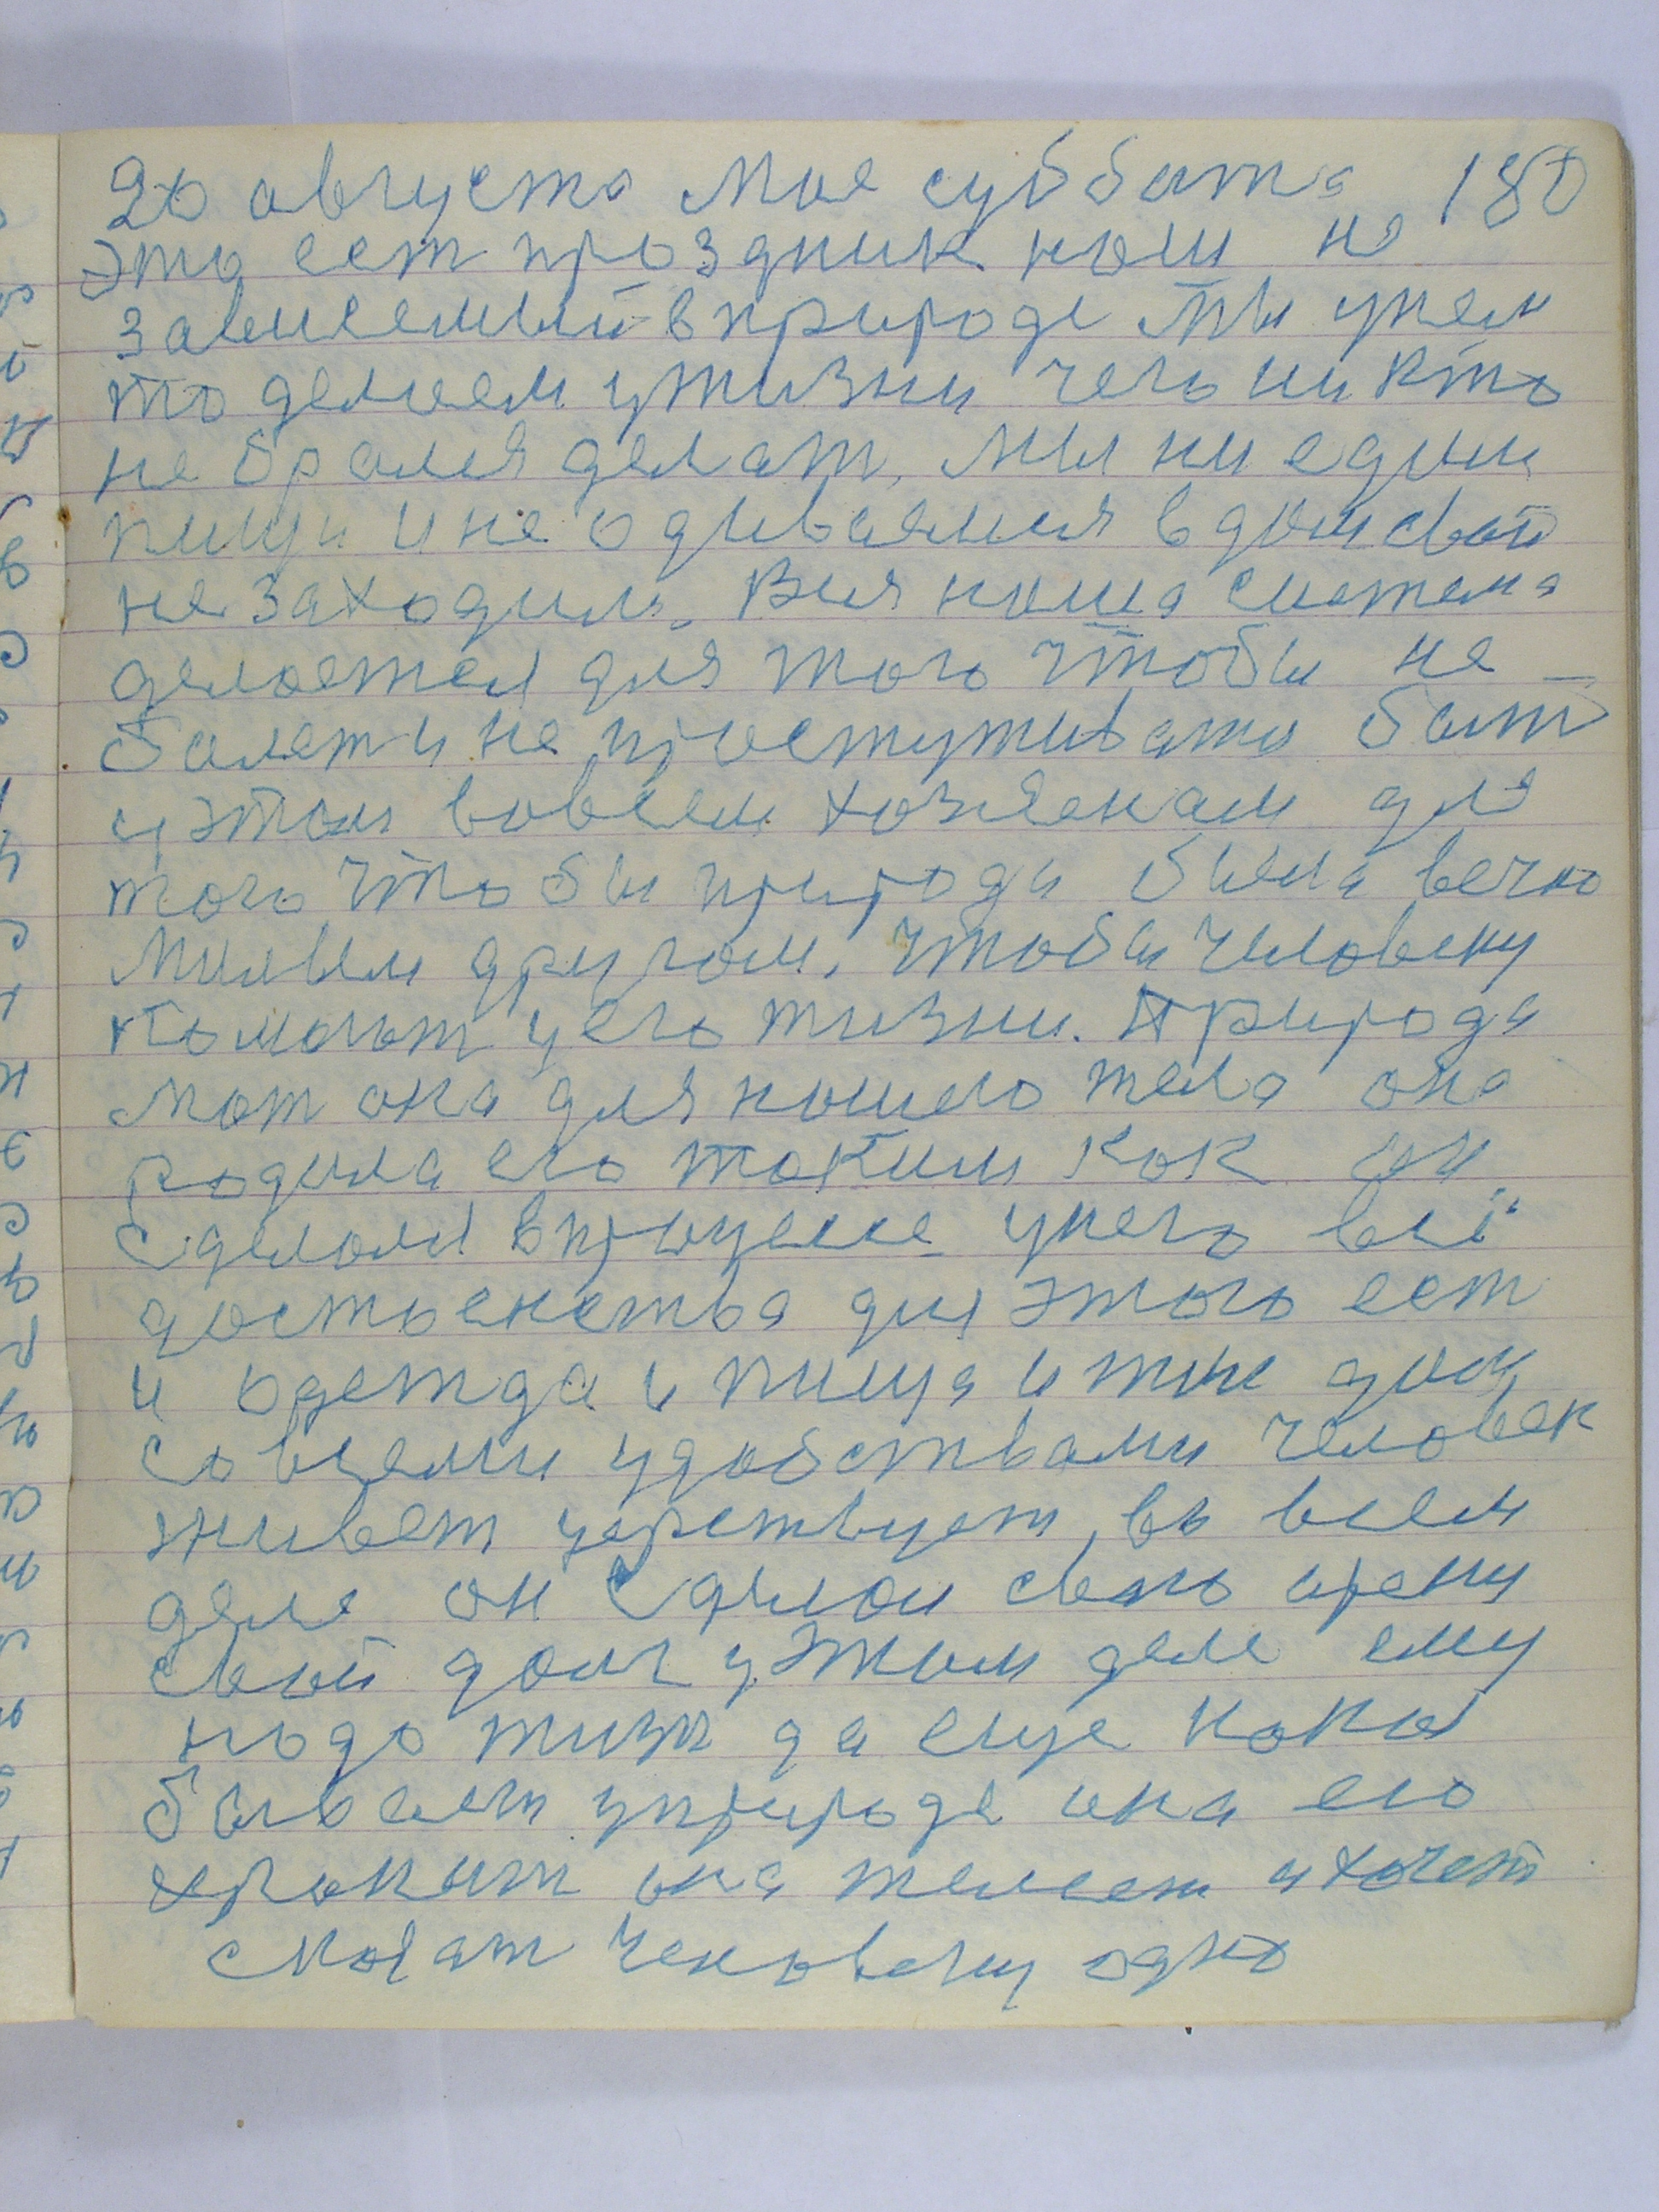 20 августа Мое суббата 180
Это ест праздник наш не
зависемый в природе мы унем
то делаем у жизни чего ни кто
не брался делат, Мы ни едим
пищи и не одиваемся в дом свой
не заходим. Вся наша система
делается для того чтобы не
балет и не простуживатся быт
у этом вовсем хозяенам для
того что бы природа была вечно
милвем другом, чтобы человеку
помогат у его жизни. Природа
мат она для нашего тела она
родила его таким как он
сделался в процессе унего всё
достоенства для этого ест
и одежда и пища и жил дом
со всеми удобствами человек
живет царствует, во всем
деле он сделал свою арену
свой долг у этом деле ему
надо жизн да еще какая
бывает у природе она его
хранит она желает и хочет
сказат человеку одно